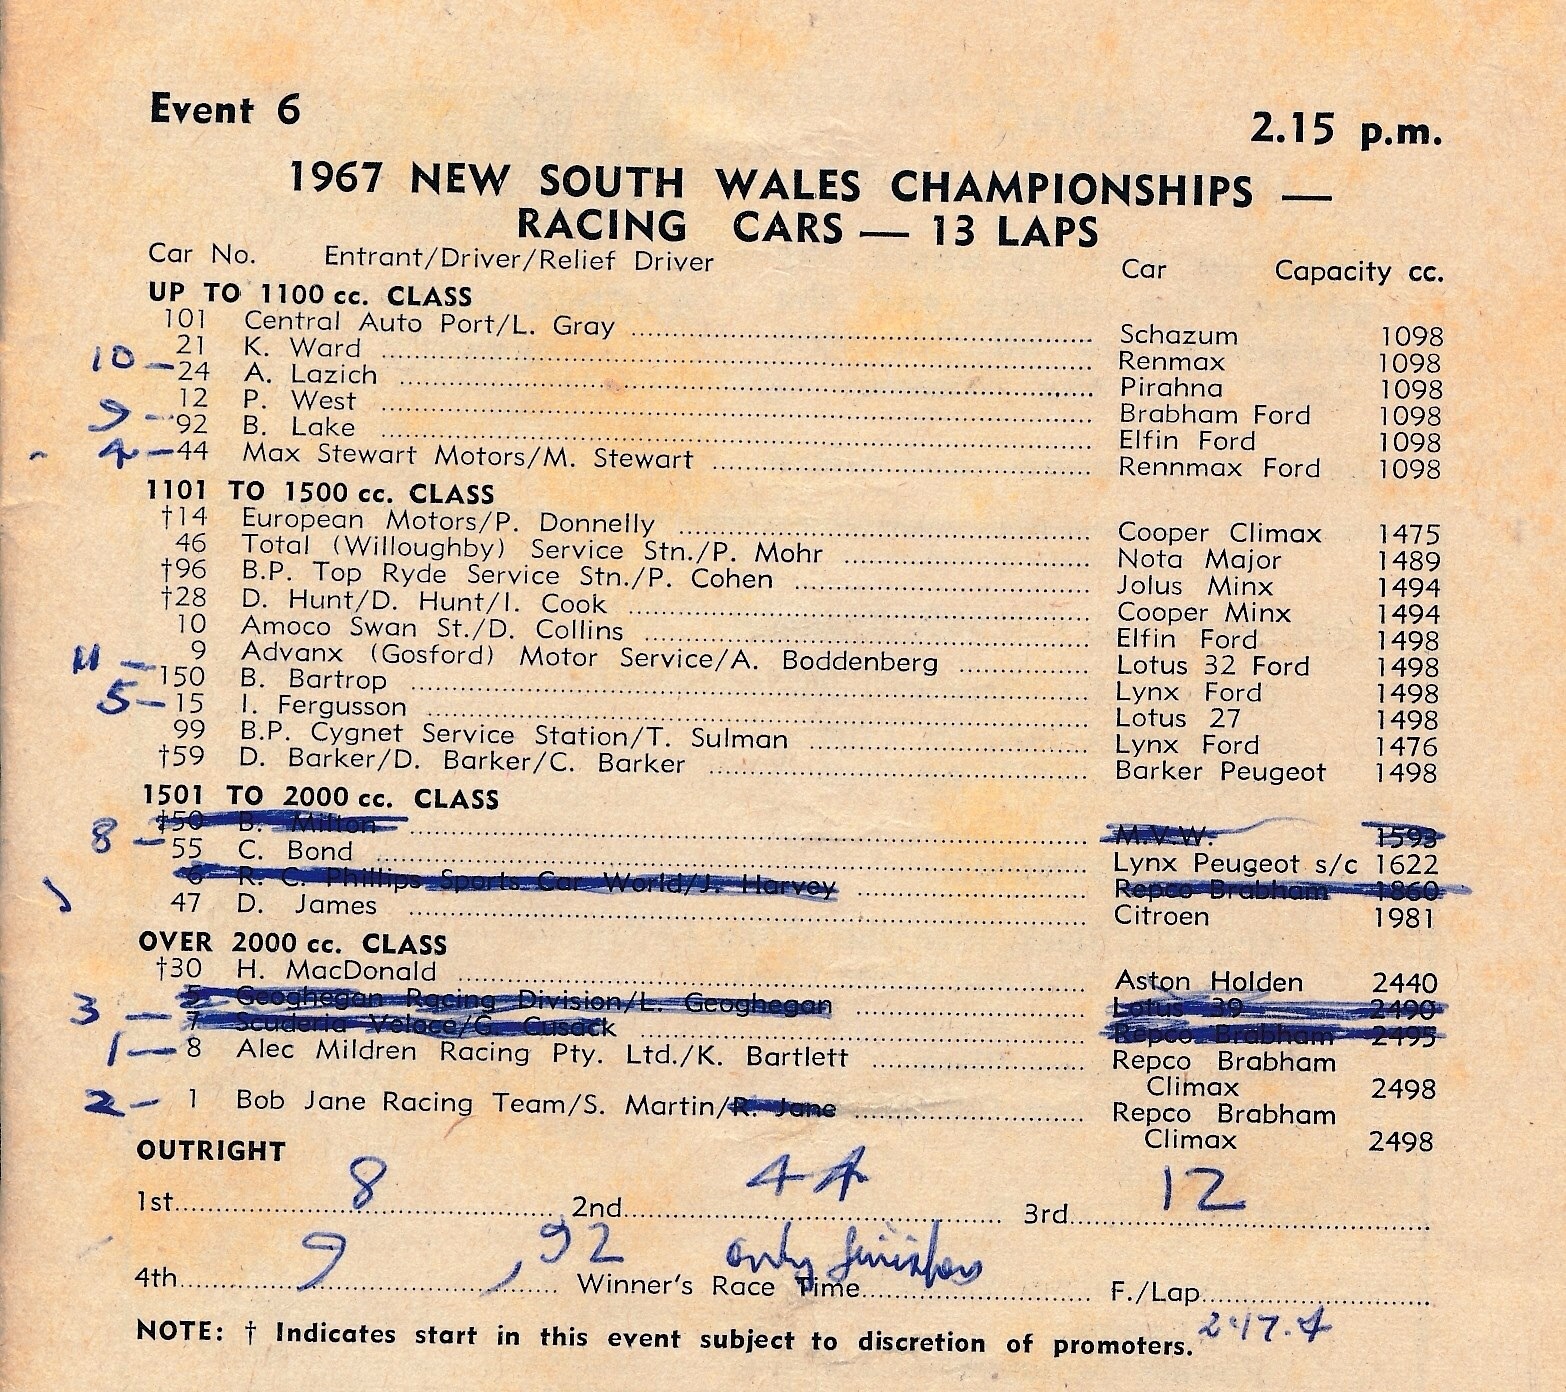 Event 6
2.15 p.m.
1967 NEW SOUTH WALES CHAMPIONSHIPS —
RACING CARS — 13 LAPS
Car No. Entrant/Driver/Relief Driver Car Capacity cc.
UP TO 1100 cc. CLASS
101 Central Auto Port/L. Gray Schazum 1098
21 K. Ward Renmax 1098
10 — 24 A. Lazich Pirahna 1098
12 P. West Brabham Ford 1098
9 — 92 B. Lake Elfin Ford 1098
4 — 44 Max Stewart Motors/M. Stewart Rennmax Ford 1098
1101 TO 1500 cc. CLASS
†14 European Motors/P. Donnelly Cooper Climax 1475
46 Total (Willoughby) Service Stn./P. Mohr Nota Major 1489
†96 B.P. Top Ryde Service Stn./P. Cohen Jolus Minx 1494
†28 D. Hunt/D. Hunt/I. Cook Cooper Minx 1494
10 Amoco Swan St./D. Collins Elfin Ford 1498
11 — 9 Advanx (Gosford) Motor Service/A. Boddenberg Lotus 32 Ford 1498
150 B. Bartrop Lynx Ford 1498
5 — 15 I. Fergusson Lotus 27 1498
99 B.P. Cygnet Service Station/T. Sulman Lynx Ford 1476
†59 D. Barker/D. Barker/C. Barker Barker Peugeot 1498
1501 TO 2000 cc. CLASS
†50 B. Milton M.V.W. 1593
8 — 55 C. Bond Lynx Peugeot s/c 1622
6 R. C. Phillips Sports Car World/J. Harvey Repco Brabham 1860
47 D. James Citroen 1981
OVER 2000 cc. CLASS
†30 H. MacDonald Aston Holden 2440
5 Geoghegan Racing Division/L. Geoghegan Lotus 39 2490
3 — 7 Scuderia Veloce/G. Cusack Repco Brabham 2495
1 — 8 Alec Mildren Racing Pty. Ltd./K. Bartlett Repco Brabham
Climax 2498
2 — 1 Bob Jane Racing Team/S. Martin/R. Jane Repco Brabham
Climax 2498
OUTRIGHT
1st 8 2nd 44 3rd 12
4th 9, 92 only finishers Winner's Race Time F./Lap
NOTE: † Indicates start in this event subject to discretion of promoters.